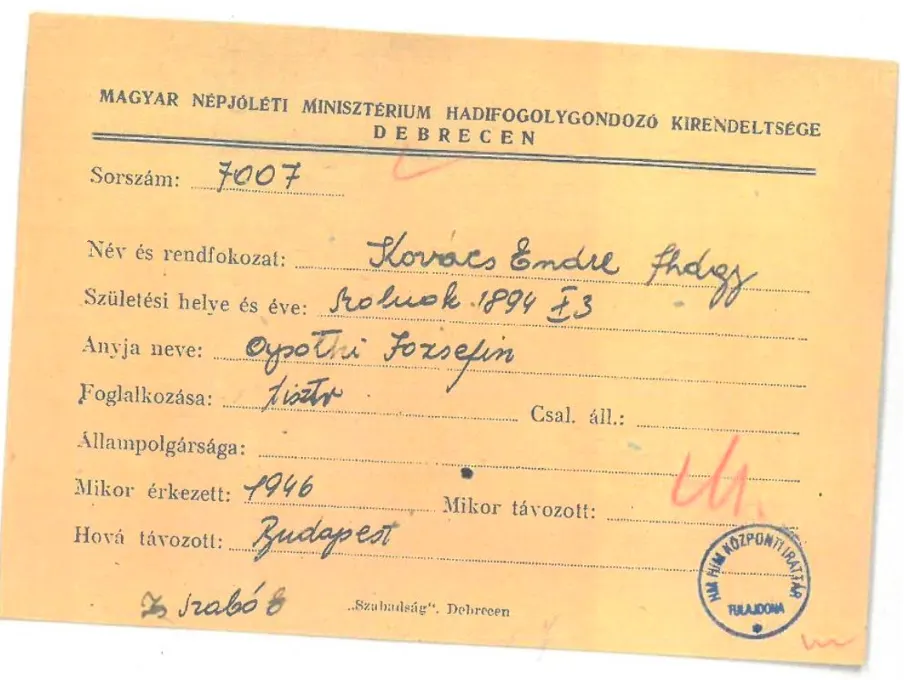 MAGYAR NÉPJÓLÉTI MINISZTÉRIUM HADIFOGOLYGONDOZÓ KIRENDELTSÉGE
DEBRECEN
Sorszám: 7007
Név és rendfokozat: Kovács Endre
Születési helye és éve: Szolnok 1894 X 3
Anyja neve: Jozsefin
Foglalkozása: tiszt
Csal. áll.:
Állampolgársága:
Mikor érkezett: 1946
Mikor távozott:
Hová távozott: Budapest
Szabó
„Szabadság”. Debrecen
HM HIM KÖZPONTI IRATTÁR
TULAJDONA